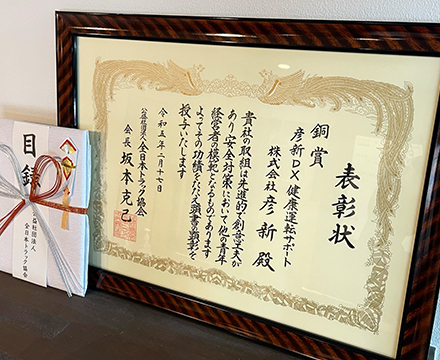 表彰状
銅賞
彦新DX健康運転サポート
株式会社彦新殿
貴社の取組は先進的で創意工夫が
あり安全対策において他の青年
経営者の模範となるものであります
よってその功績をたたえ頭書の顕彰を
授与いたします
令和五年二月十七日
公益社団法人全日本トラック協会
会長坂本克己
目録
公益社団法人
全日本トラック協会